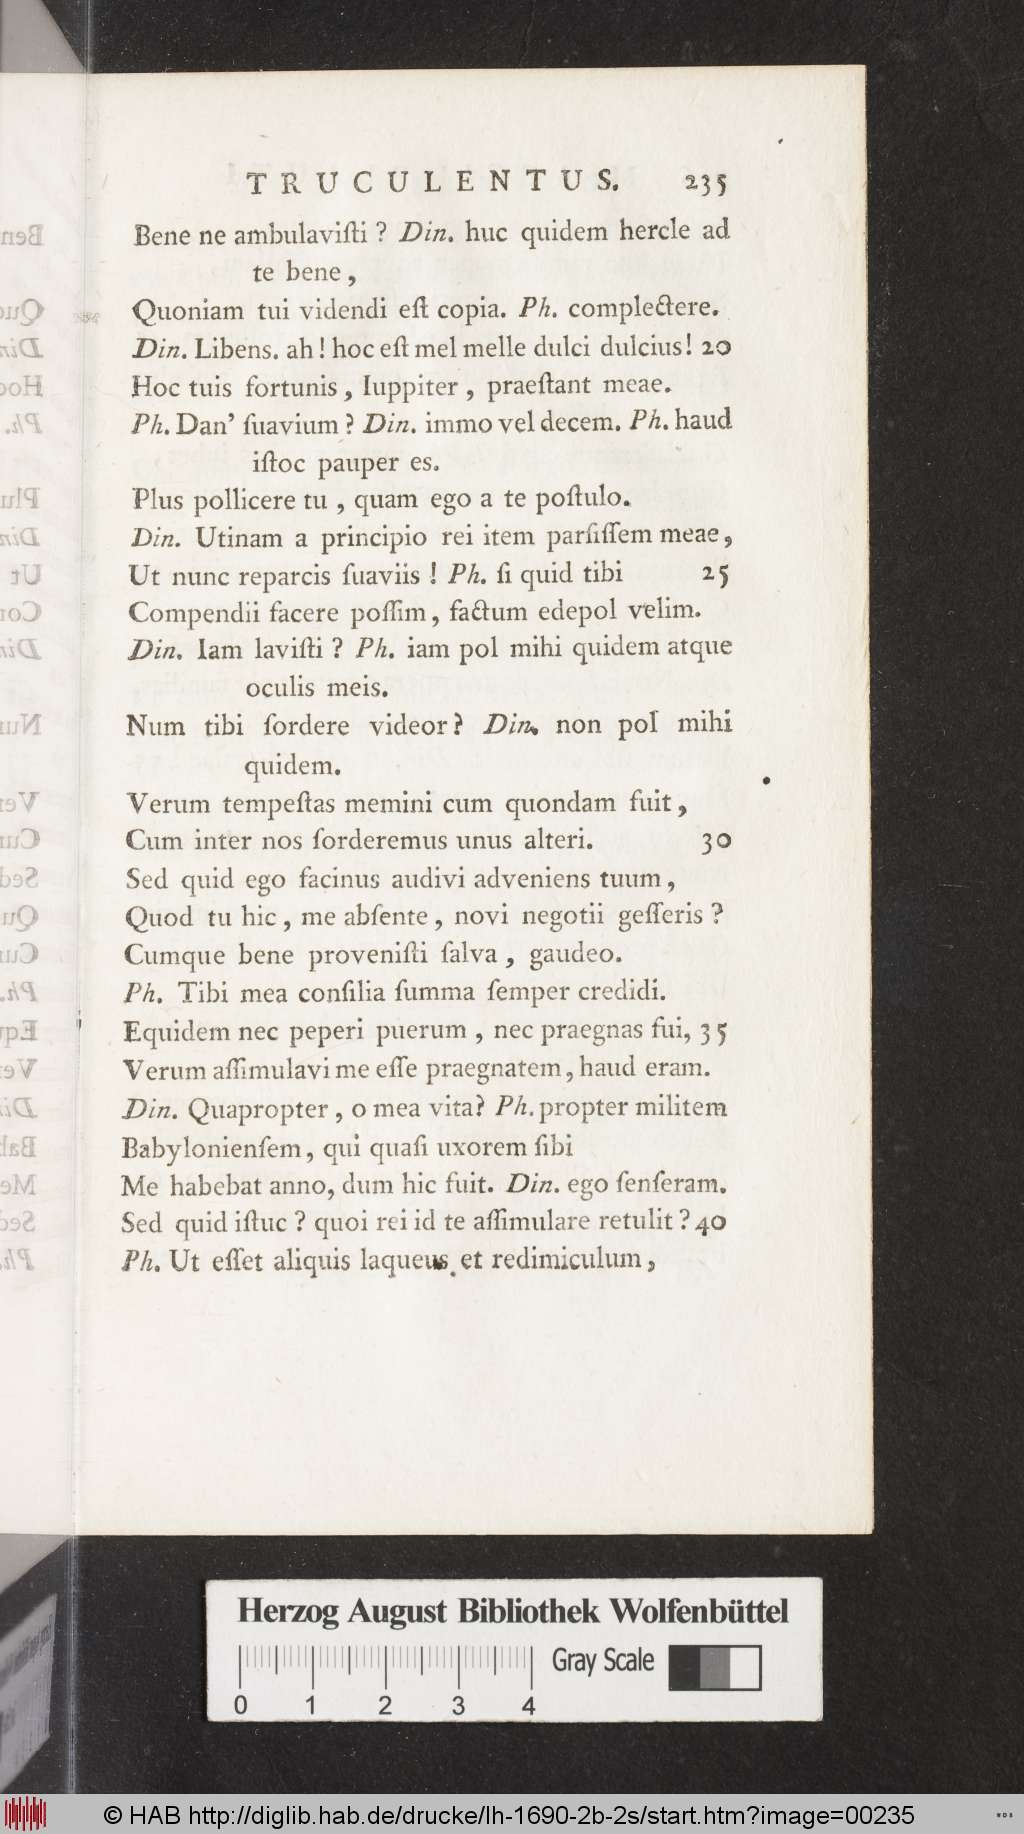 TRUCULENTUS. 235
Bene ne ambulaviſti? Din. huc quidem hercle ad
te bene,
Quoniam tui videndi eſt copia. Ph. complectere.
Din. Libens. ah! hoc eſt mel melle dulci dulcius! 20
Hoc tuis fortunis, Iuppiter, praeſtant meae.
Ph. Dan' ſuavium? Din. immo vel decem. Ph. haud
iſtoc pauper es.
Plus pollicere tu, quam ego a te poſtulo.
Din. Utinam a principio rei item parſiſſem meae,
Ut nunc reparcis ſuaviis! Ph. ſi quid tibi 25
Compendii facere poſſim, factum edepol velim.
Din. Iam laviſti? Ph. iam pol mihi quidem atque
oculis meis.
Num tibi ſordere videor? Din. non pol mihi
quidem.
Verum tempeſtas memini cum quondam fuit,
Cum inter nos ſorderemus unus alteri. 30
Sed quid ego facinus audivi adveniens tuum,
Quod tu hic, me abſente, novi negotii geſſeris?
Cumque bene proveniſti ſalva, gaudeo.
Ph. Tibi mea conſilia ſumma ſemper credidi.
Equidem nec peperi puerum, nec praegnas fui, 35
Verum aſſimulavi me eſſe praegnatem, haud eram.
Din. Quapropter, o mea vita? Ph. propter militem
Babylonienſem, qui quaſi uxorem ſibi
Me habebat anno, dum hic fuit. Din. ego ſenſeram.
Sed quid iſtuc? quoi rei id te aſſimulare retulit? 40
Ph. Ut eſſet aliquis laqueus et redimiculum,
Herzog August Bibliothek Wolfenbüttel
Gray Scale
0 1 2 3 4
© HAB http://diglib.hab.de/drucke/lh-1690-2b-2s/start.htm?image=00235